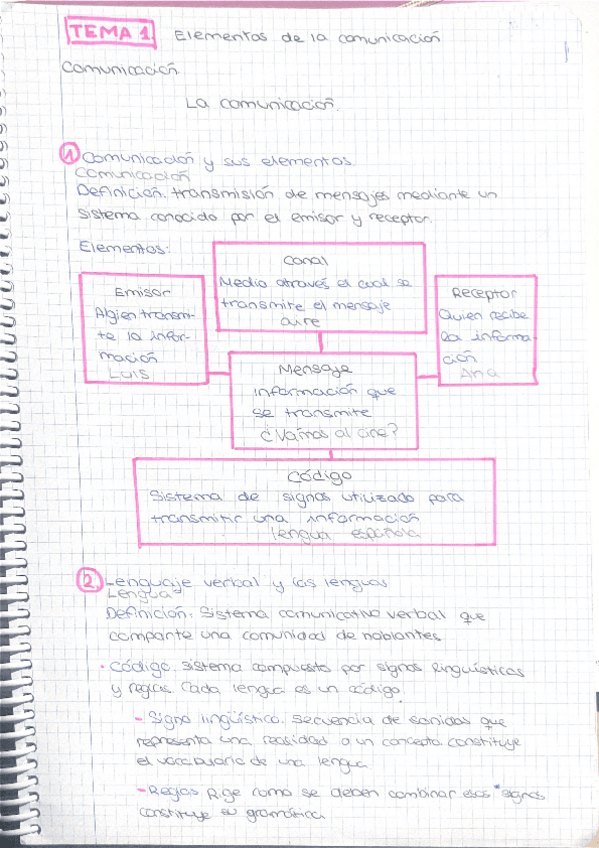 TEMA 1 Elementos de la comunicación
Comunicación
La comunicación.
1 Comunicación y sus elementos
Comunicación
Definición. transmisión de mensajes mediante un
sistema conocido por el emisor y receptor.
Elementos:
Canal
Medio através el cual se
transmite el mensaje
aire
Emisor
Algien transm-
te la infor-
mación
Luis
Receptor
Quien recibe
la informa-
ción
Ana
Mensaje
Información que
se transmite
¿Vamos al cine?
Código
Sistema de signos utilizado para
transmitir una información
lengua española
2 Lenguaje verbal y las lenguas
Lengua
Definición. Sistema comunicativo verbal que
comparte una comunidad de hablantes
· Código. sistema compuesto por signos lingüísticos
y reglas. Cada lengua es un código.
- Signo lingüístico. Secuencia de sonidos que
representa una realidad o un concepto constituye
el vocabulario de una lengua
- Reglas. Rige como se deben combinar esos signos
constituye su gramática.